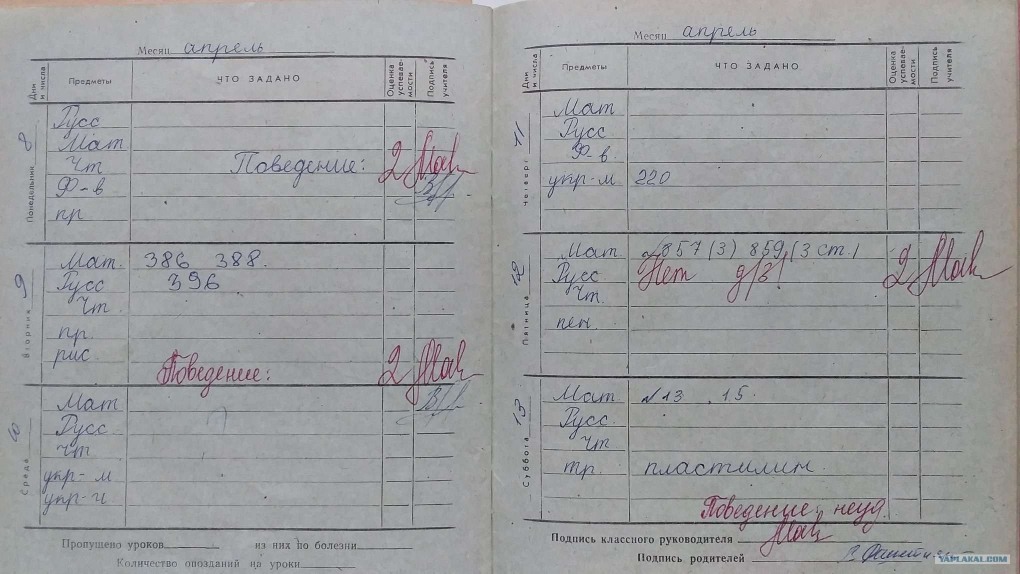 Месяц апрель
Дни и числа Предметы ЧТО ЗАДАНО Оценка успеваемости Подпись учителя
Понедельник 8
Русс
Мат
Чт Поведение: 2
Ф-в
пр
Вторник 9
Мат. 386 388.
Русс 396
Чт.
пр
рис
Поведение: 2
Среда
Мат
Русс
чт
укр-м
укр-ч
Пропущено уроков из них по болезни
Количество опозданий на уроки
Месяц апрель
Дни и числа Предметы ЧТО ЗАДАНО Оценка успеваемости Подпись учителя
Четверг 11
Мат
Русс
Ф-в
укр-м 220
Пятница 12
Мат 857 (3) 859 (3 ст.)
Русс Нет д/з! 2
Чт.
пен.
Суббота 13
Мат №13 .15.
Русс
Чт
тр. пластилин
Поведение, неуд.
Подпись классного руководителя
Подпись родителей
YAPLAKAL.COM